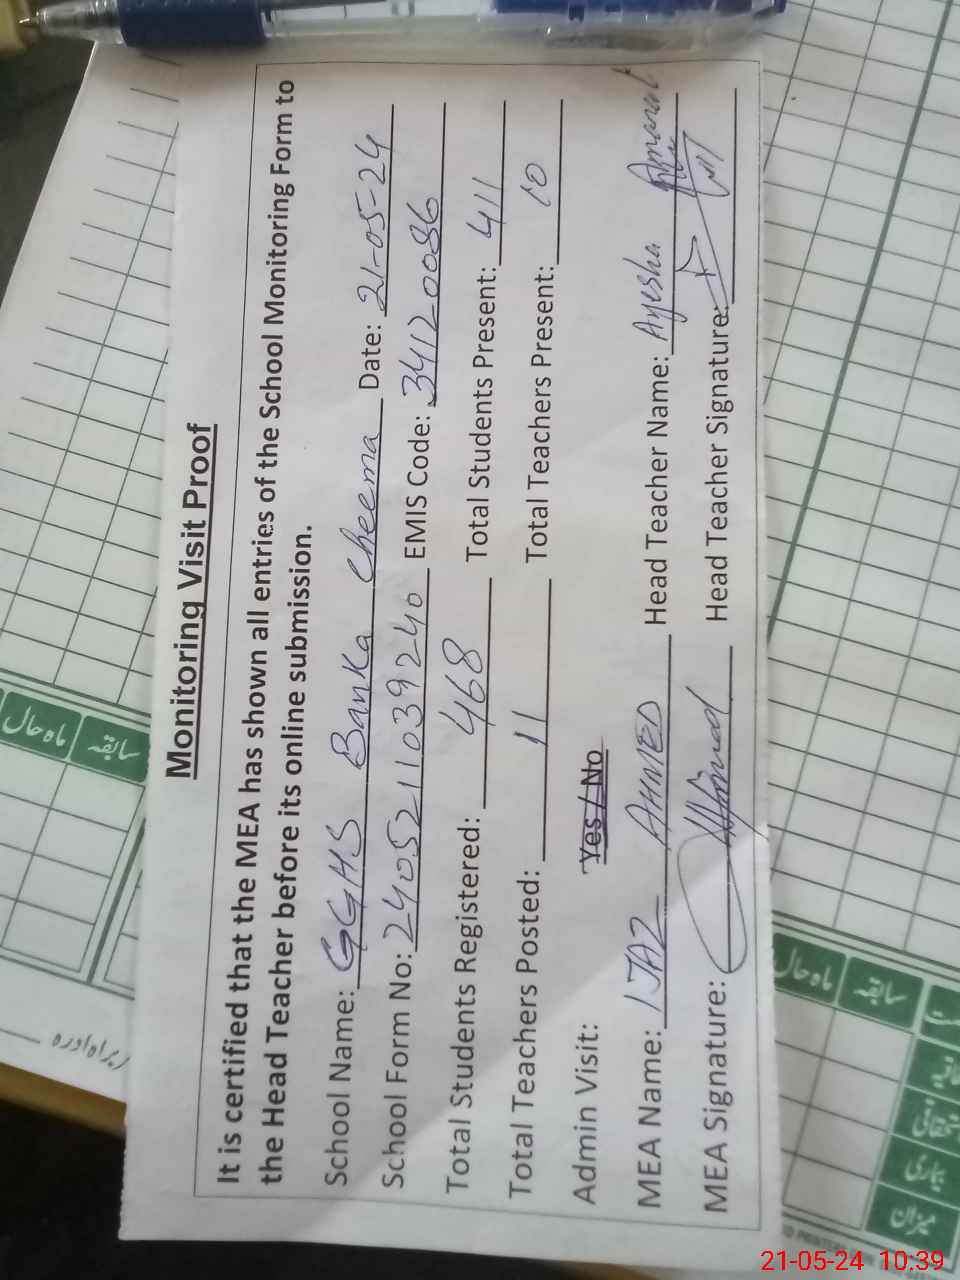 Monitoring Visit Proof
It is certified that the MEA has shown all entries of the School Monitoring Form to
the Head Teacher before its online submission.
School Name: GGHS Banka Cheema Date: 21-05-24
School Form No: 2405211039240 EMIS Code: 34120086
Total Students Registered: 468 Total Students Present: 411
Total Teachers Posted: 11 Total Teachers Present: 10
Admin Visit: Yes / No
MEA Name: IJAZ AHMED Head Teacher Name: Ayesha Amanat
MEA Signature: Ahmed Head Teacher Signature:
ماہ حال
سابقہ
ماہ حال
سابقہ
بیماری
میزان
21-05-24 10:39